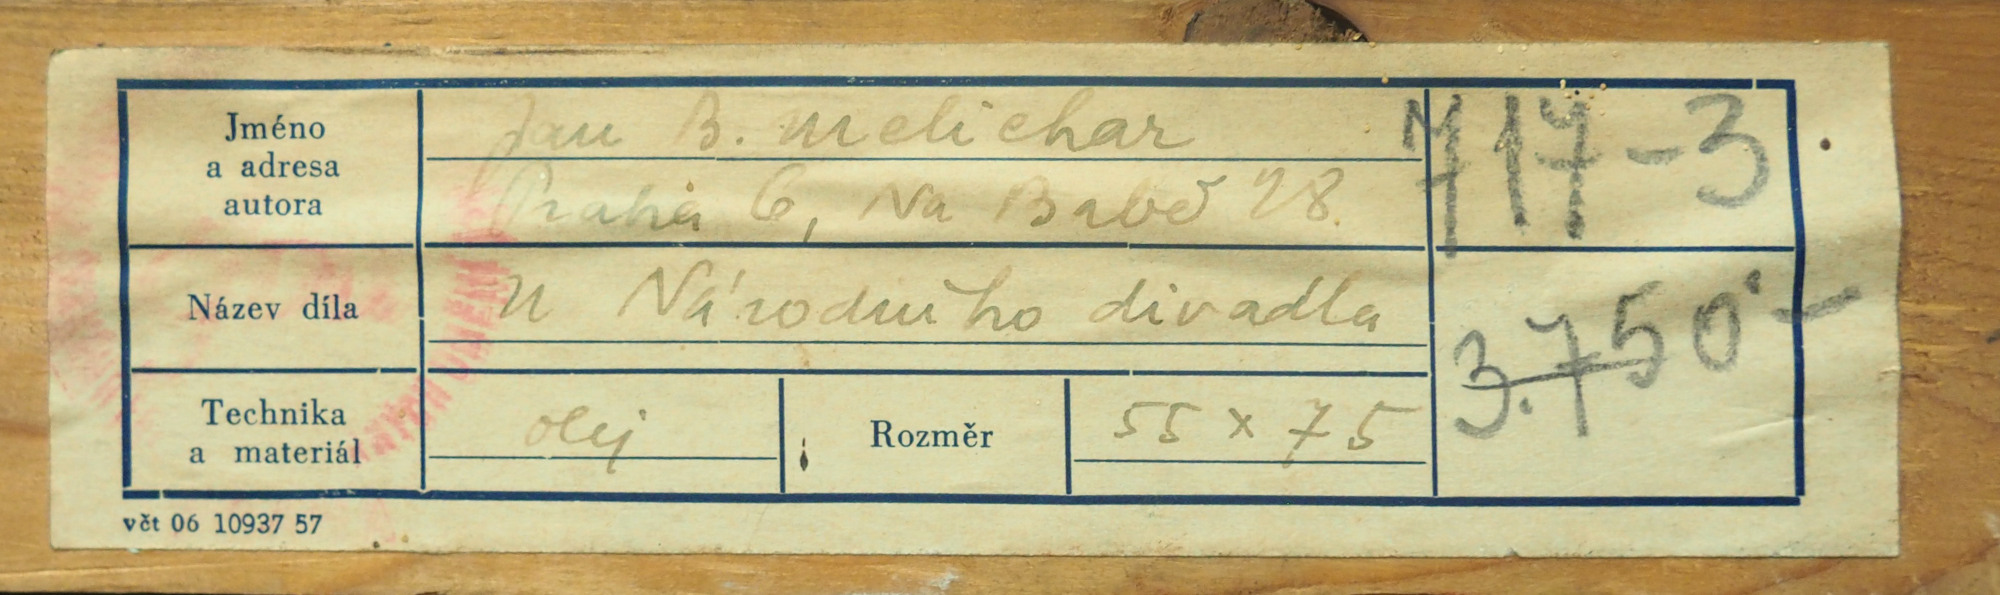 Jméno
a adresa
autora
Jan B. Melichar
Praha 6, Na Babě 28.
717-3
Název díla
U Národního divadla
3.750.-
Technika
a materiál
olej
Rozměr
55 x 75
vět 06 10937 57